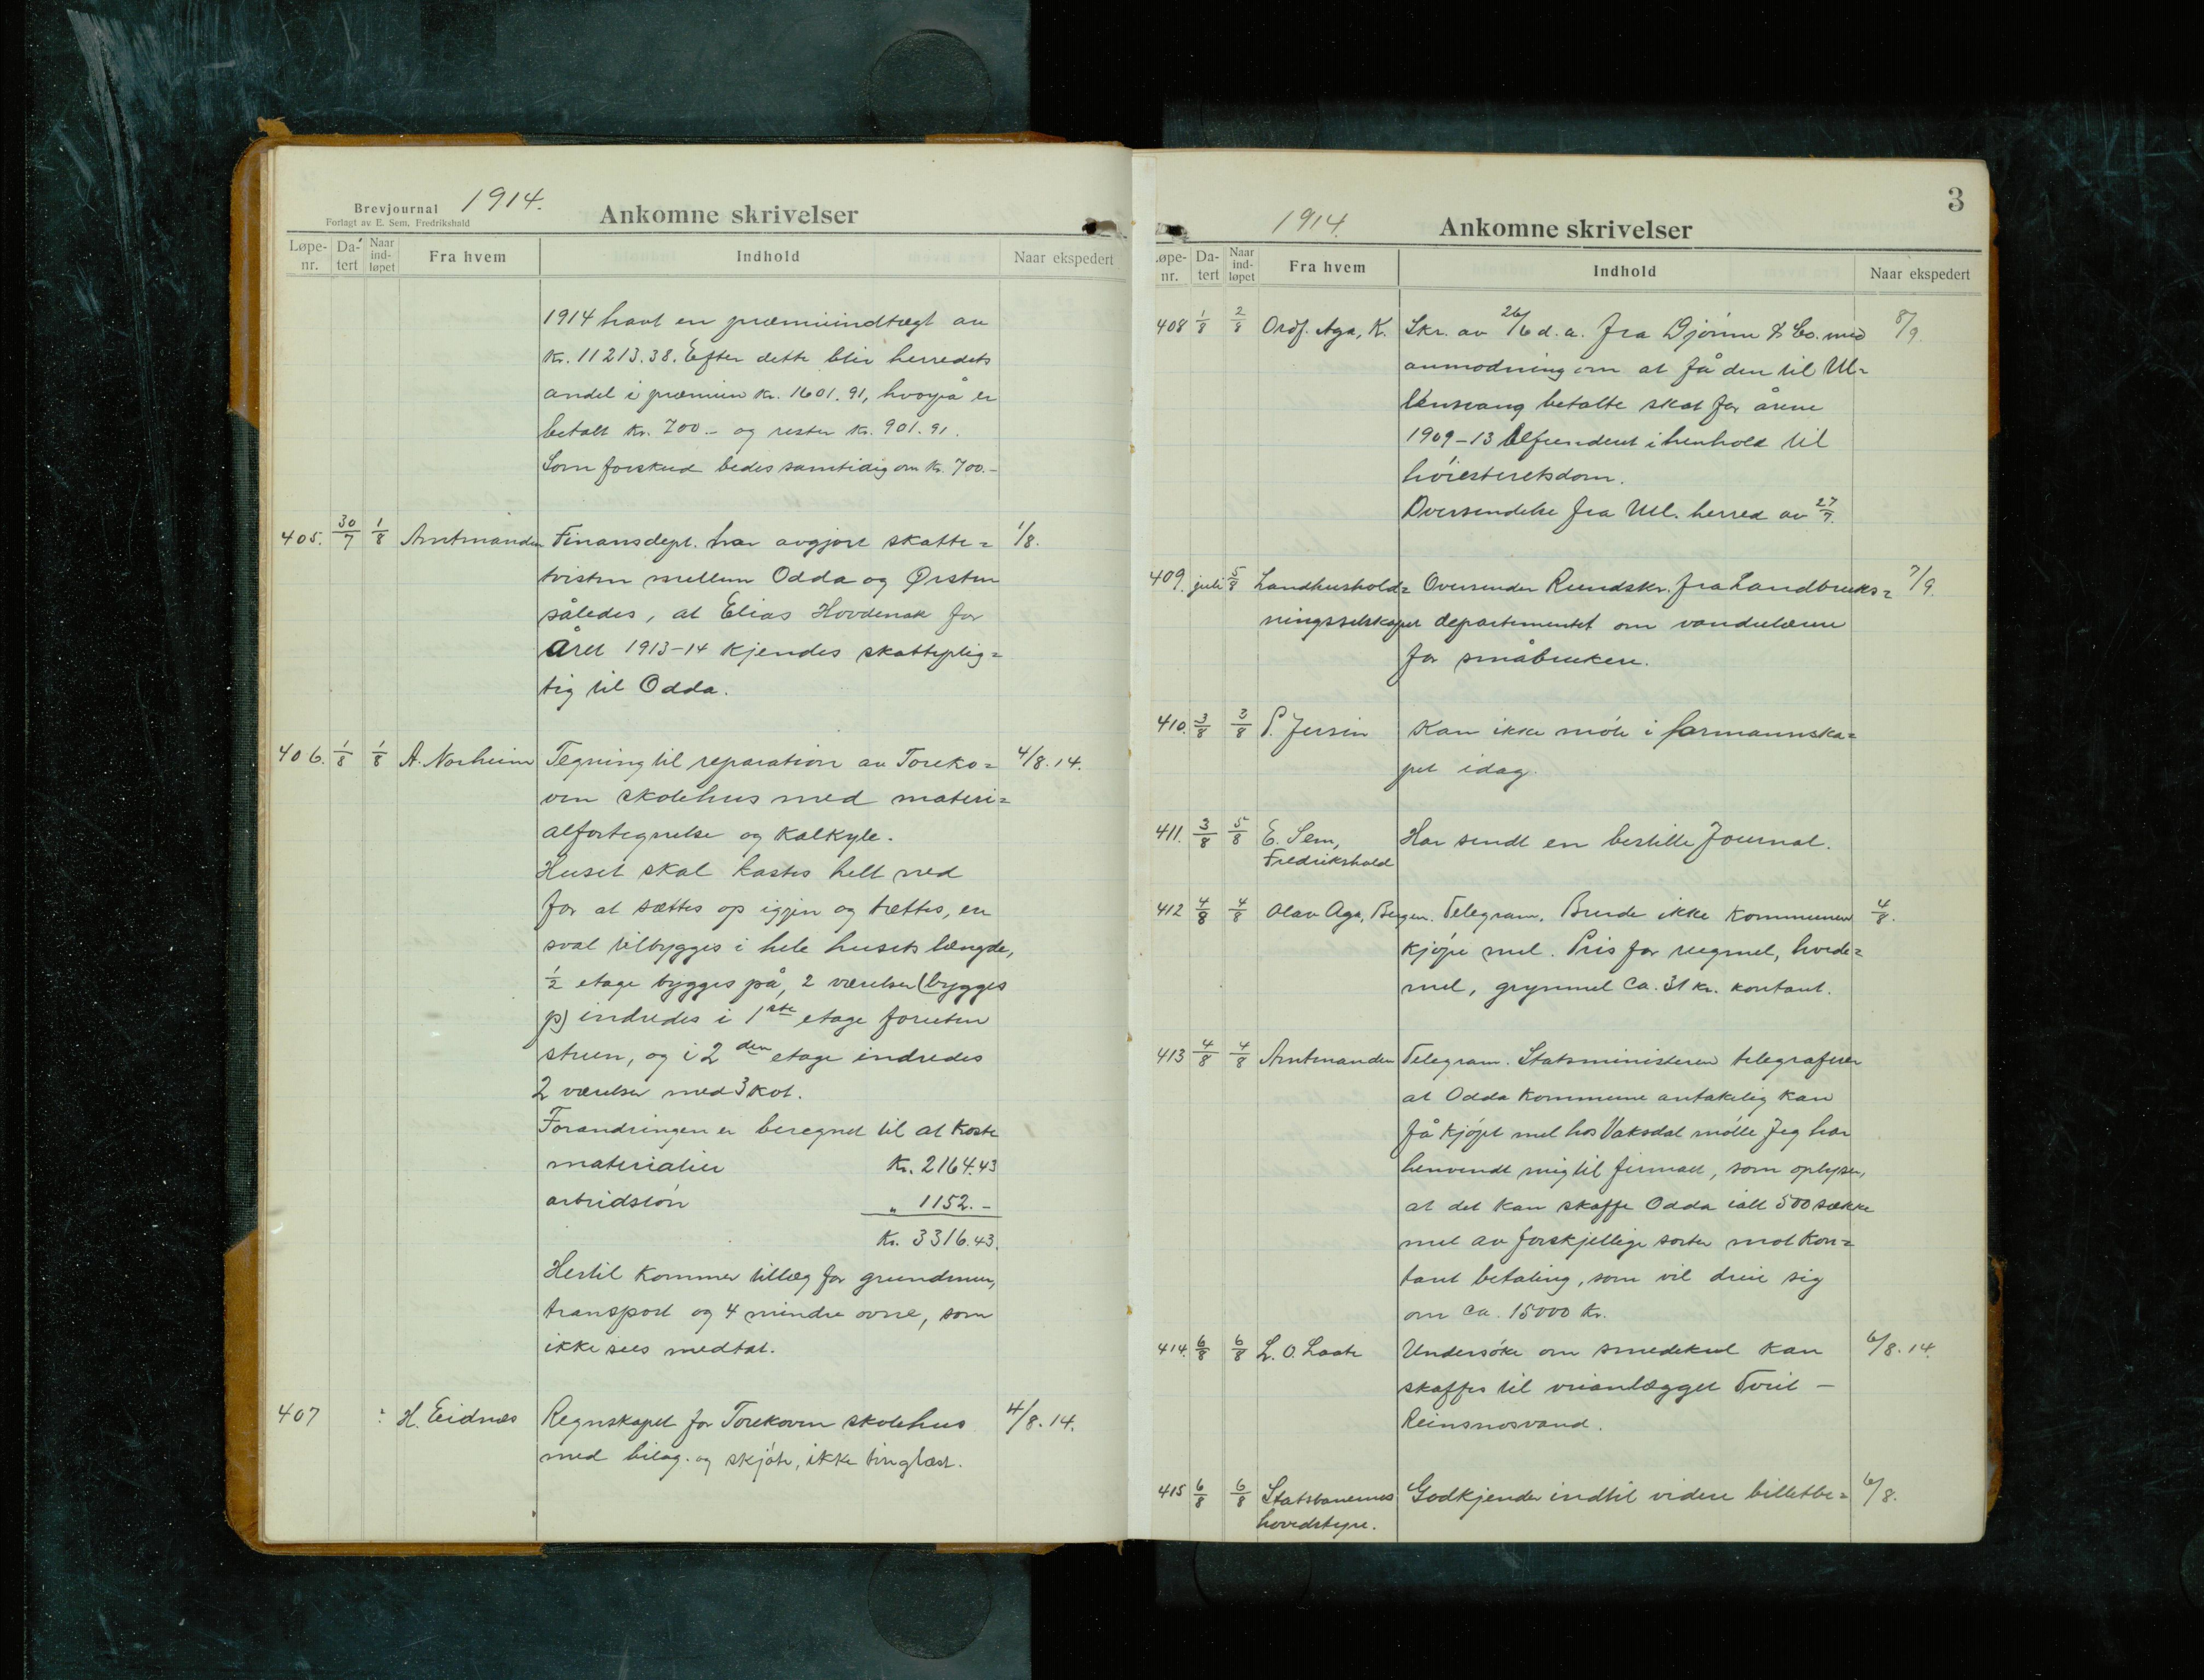 Brevjournal 1914.
Forlagt av E. Sem, Fredrikshald
Ankomne skrivelser
Løpe-nr. Da-tert Naar ind-løpet Fra hvem Indhold Naar ekspedert
1914 havt en præmieindtægt av
Kr. 11213.38. Efter dette blir herredets
andel i præmien Kr. 1601.91, hvorpå er
betalt Kr. 700.- og rester Kr. 901.91.
Som forskud bedes samtidig om Kr. 700.-
405. 30/7 1/8 Amtmanden Finansdept. har avgjort skatte= 1/8.
tvisten mellem Odda og Ørsten
således, at Elias Hovdenak for
Året 1913-14 kjendes skatteplig=
tig til Odda.
406. 1/8 1/8 A. Norheim Tegning til reparation av Toreko= 4/8.14.
ven skolehus med materi=
alfortegnelse og kalkyle.
Huset skal kastes helt ned
for at sættes op igjen og tættes, en
sval tilbygges i hele husets længde,
1/2 etage bygges på, 2 værelser (bygges
p) indredes i 1ste etage foruten
stuen, og i 2den etage indredes
2 værelser med 3 kot.
Forandringen er beregnet til at koste
materialier Kr. 2164.43
arbeidsløn " 1152.-
Kr. 3316.43.
Hertil kommer tillæg for grundmur,
transport og 4 mindre ovne, som
ikke sees medtat.
407 : H. Eidnæs Regnskapet for Torekoven skolehus 4/8.14.
med bilag. og skjøte, ikke tinglæst.
3
1914. Ankomne skrivelser
Løpe-nr. Da-tert Naar ind-løpet Fra hvem Indhold Naar ekspedert
408 1/8 2/8 Ordf. Aga, K. Skr. av 26/6 d.a. fra Djønne & Co. med 8/9.
anmodning om at få den til Ul=
lensvang betalte skat for årene
1909-13 refunderet i henhold til
høiesteretsdom.
Oversendelse fra Ull. herred av 27/7.
409. juli 5/8 Landhushold= Oversender Rundskr. fra Landbruks= 7/9.
ningsselskapet departementet om vandrelærere
for småbrukere.
410. 3/8 3/8 P. Jersin Kan ikke møte i formannska=
pet idag.
411. 3/8 5/8 E. Sem, Har sendt en bestilte Journal.
Fredrikshald
412 4/8 4/8 Olav Aga, Bergen. Telegram. Burde ikke kommunen 4/8.
kjøpe mel. Pris for rugmel, hvede=
mel, grynmel ca. 31 kr. kontant.
413 4/8 4/8 Amtmanden Telegram. Statsministeren telegraferer
at Odda kommune antakelig kan
få kjøpt mel hos Vaksdal mølle Jeg har
henvendt mig til firmaet, som oplyser,
at det kan skaffe Odda ialt 500 sække
mel av forskjellige sorter mot kon=
tant betaling, som vil dreie sig
om ca. 15000 Kr.
414. 6/8 6/8 L. O. Laate Undersøke om smedekul kan 6/8.14.
skaffes til veianlægget Tveit -
Reinsnosvand.
415 6/8 6/8 Statsbanernes Godkjender indtil videre billetbe= 6/8.
hovedstyre.